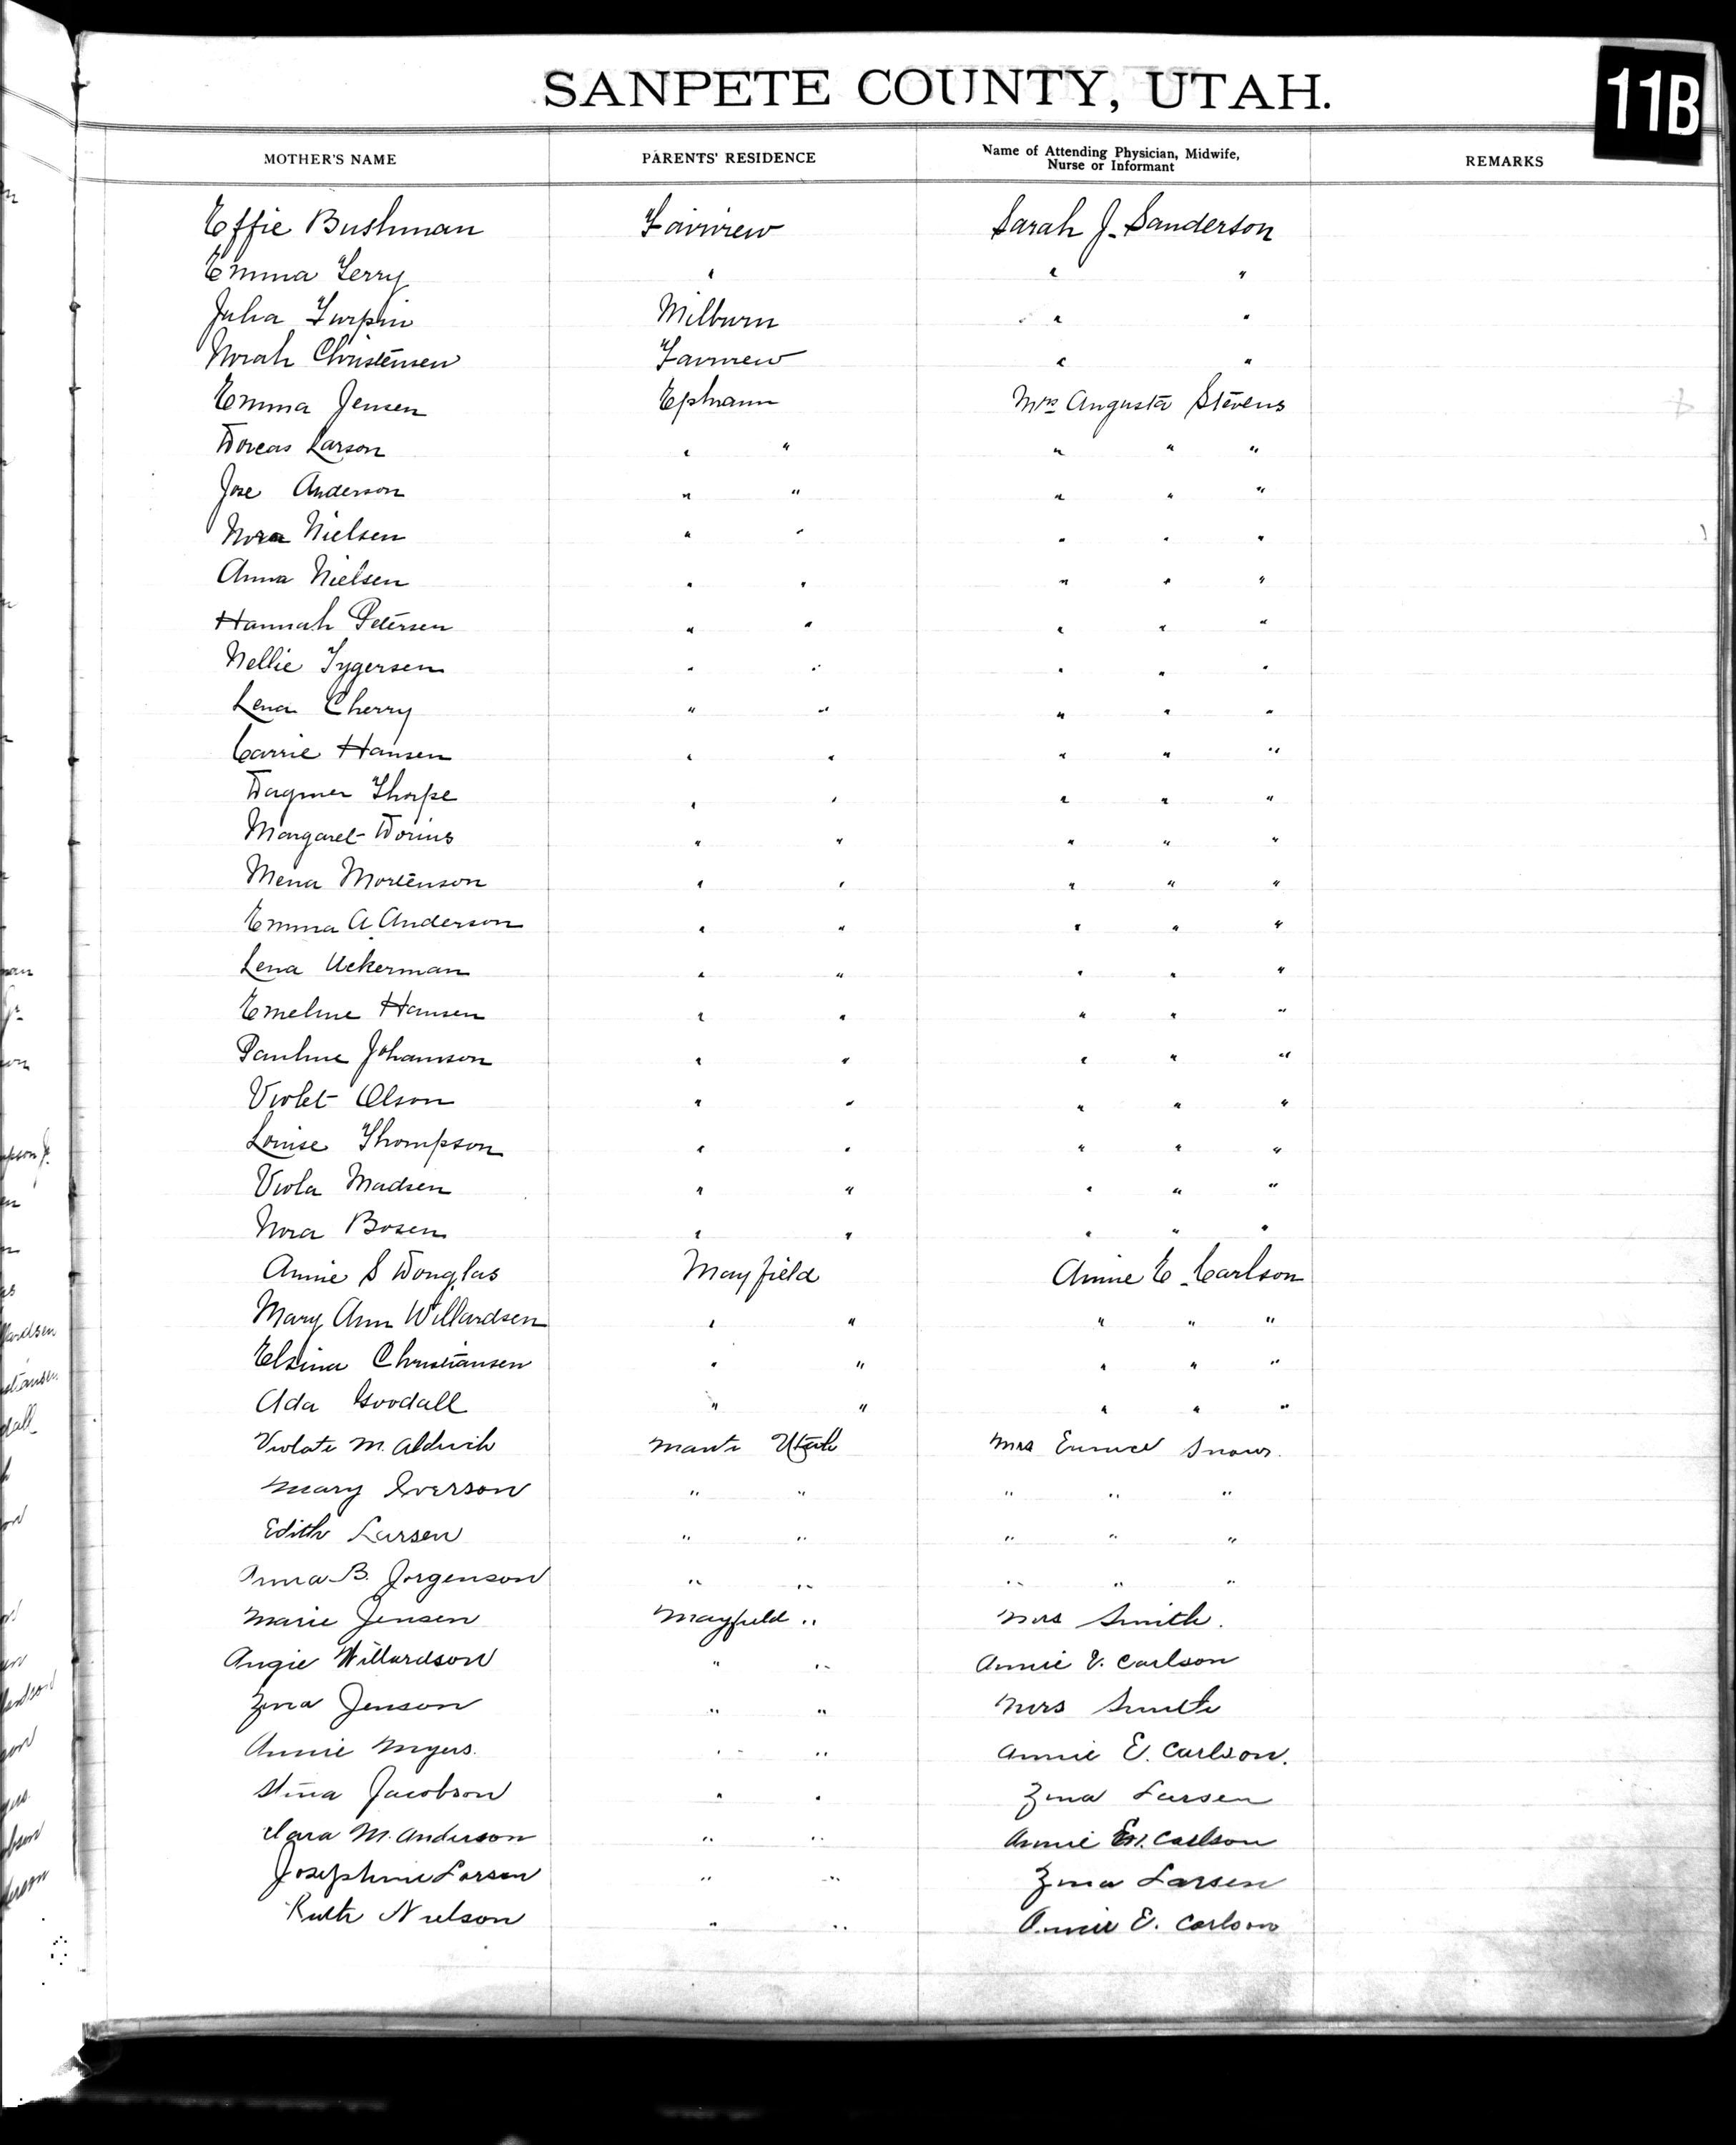 SANPETE COUNTY, UTAH.
11B
MOTHER'S NAME PARENTS' RESIDENCE Name of Attending Physician, Midwife, Nurse or Informant REMARKS
Effie Bushman Fairview Sarah J. Sanderson
Emma Terry " " "
Julia Turpin Milburn " "
Norah Christensen Fairview " "
Emma Jensen Ephraim Mrs Augusta Stevens
Dorcas Larson " " " " "
Jose Anderson " " " " "
Nora Nielsen " " " " "
Anna Nielsen " " " " "
Hannah Petersen " " " " "
Nellie Tygersen " " " " "
Lena Cherry " " " " "
Carrie Hansen " " " " "
Dagmer Thorpe " " " " "
Margaret Dorius " " " " "
Mena Mortenson " " " " "
Emma A. Anderson " " " " "
Lena Uckerman " " " " "
Emeline Hansen " " " " "
Pauline Johanson " " " " "
Violet Olson " " " " "
Louise Thompson " " " " "
Viola Madsen " " " " "
Nora Bosen " " " " "
Annie S Douglas Mayfield Annie E. Carlson
Mary Ann Willardsen " " " " "
Elsina Christiansen " " " " "
Ada Goodall " " " " "
Violate M. Aldrich Manti Utah Mrs Eunice Snow.
Mary Iverson " " " " "
Edith Larsen " " " " "
Anna B. Jorgenson " " " " "
Marie Jensen Mayfield " Mrs Smith.
Angie Willardson " " Annie E. Carlson
Zina Jenson " " Mrs Smith
Annie Myers. " " Annie E. Carlson.
Stina Jacobson " " Zina Larsen
Clara M. Anderson " " Annie E. Carlson
Josephine Larsen " " Zina Larsen
Ruth Nielson " " Annie E. Carlson